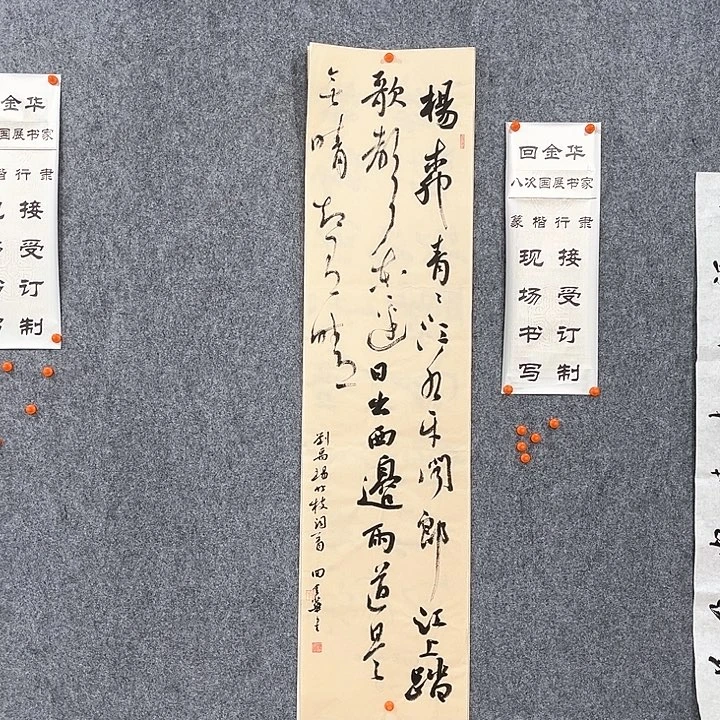 金华
国展书家
楷行隶
接受订制
楊柳青青江水平聞郎江上踏
歌聲東邊日出西邊雨道是
無晴却有晴
劉禹錫竹枝詞一首 回金華書
回金华
八次国展书家
篆楷行隶
现场书写
接受订制